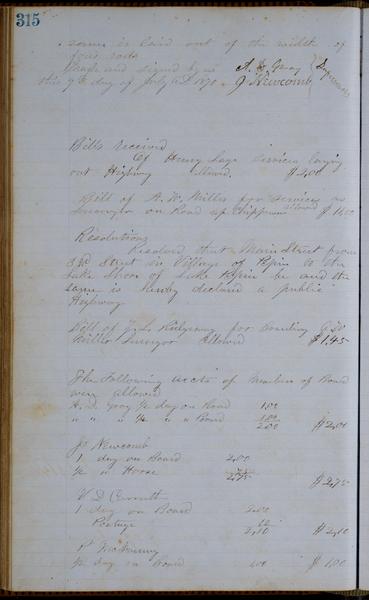 315
same is laid out of the width of
four rods
Made and signed by us A. D. Gray
this 9th day of July A.D. 1870 J Newcomb
Supervisors
Bills received
Of Henry Sage services laying
out Highway allowed. $2,00
Bill of A. W. Miller for services as
Surveyor on Road up Chippewa allowed $
Resolutions
Resolved that Main Street from
3rd Street in Village of Pepin to the
Lake Shore of Lake Pepin be and the
same is hereby declared a public
Highway
Bill of for boarding
Miller Surveyor Allowed $1,45
The Following accts of Members of Board
were allowed
Gray ½ day on Road 1,00
" " " ½ " " Board 1,00
2,00 $2,00
Jo Newcomb
1 day on Board 2,00
½ " Horse 75
2,75 $2,75
V. D.
1 day on Board 2,00
Postage 10
2,10 $2,10
P.
½ day on Board 1,00 $1,00